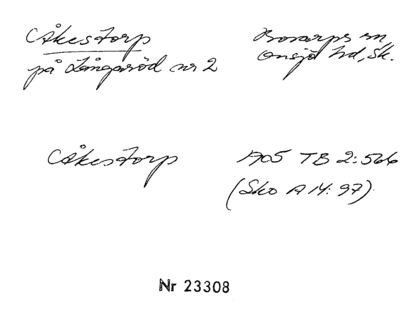 Åkestorp
på Långaröd nr 2
Bosarps sn,
Onsjö hd, Sk.
Åkestorp
1705 TB 2:566
(Sko A 14: 97).
Nr 23308